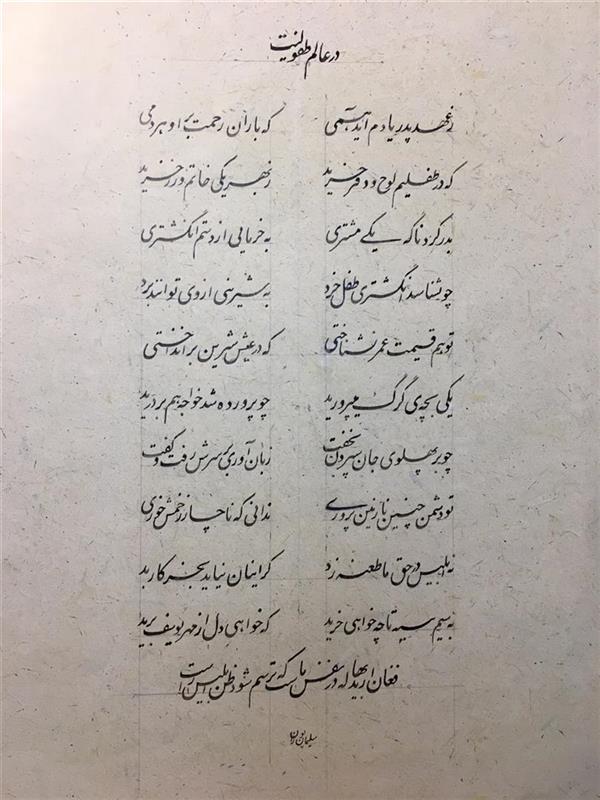 در عالم طفولیت
ز عهد پدر یادم آید همی که باران رحمت بر او هر دمی
که در طفلیم لوح و دفتر خرید ز بهر یکی خاتم و زر خرید
بدر کرد ناگه یکی مشتری به خرمایی از دستم انگشتری
چو نشناسد انگشتری طفل خرد به شیرینی از وی توانند برد
تو هم قیمت عمر نشناختی که در عیش شیرین برانداختی
یکی بچه‌ی گرگ میپرورید چو پرورده شد خواجه هم بر درید
چو بر پهلوی جان سپردن بخفت زبان آوری بر سرش رفت و گفت
تو دشمن چنین نازنین پروری ندانی که ناچار زخمش خوری
نه ابلیس در حق ما طعنه زد کز اینان نیاید بجز کار بد
به سیم سیه تا چه خواهی خرید که خواهی دل از مهر یوسف برید
فغان از بدیها که در نفس ماست که ترسم شود ظن ابلیس راست
سلیمان